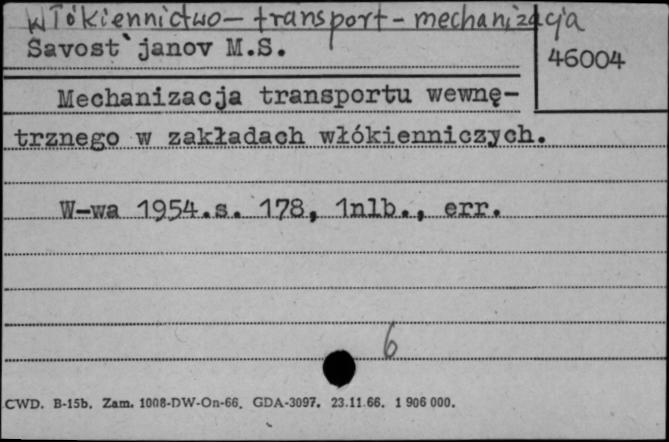 Włókiennictwo - transport - mechanizacja
Savost`janov M.S.
46004
Mechanizacja transportu wewnę-
trznego w zakładach włókienniczych.
W-wa 1954.s. 178, 1nlb., err.
6
CWD. B-15b. Zam. 1008-DW-On-66. GDA-3097. 23.11.66. 1 906 000.